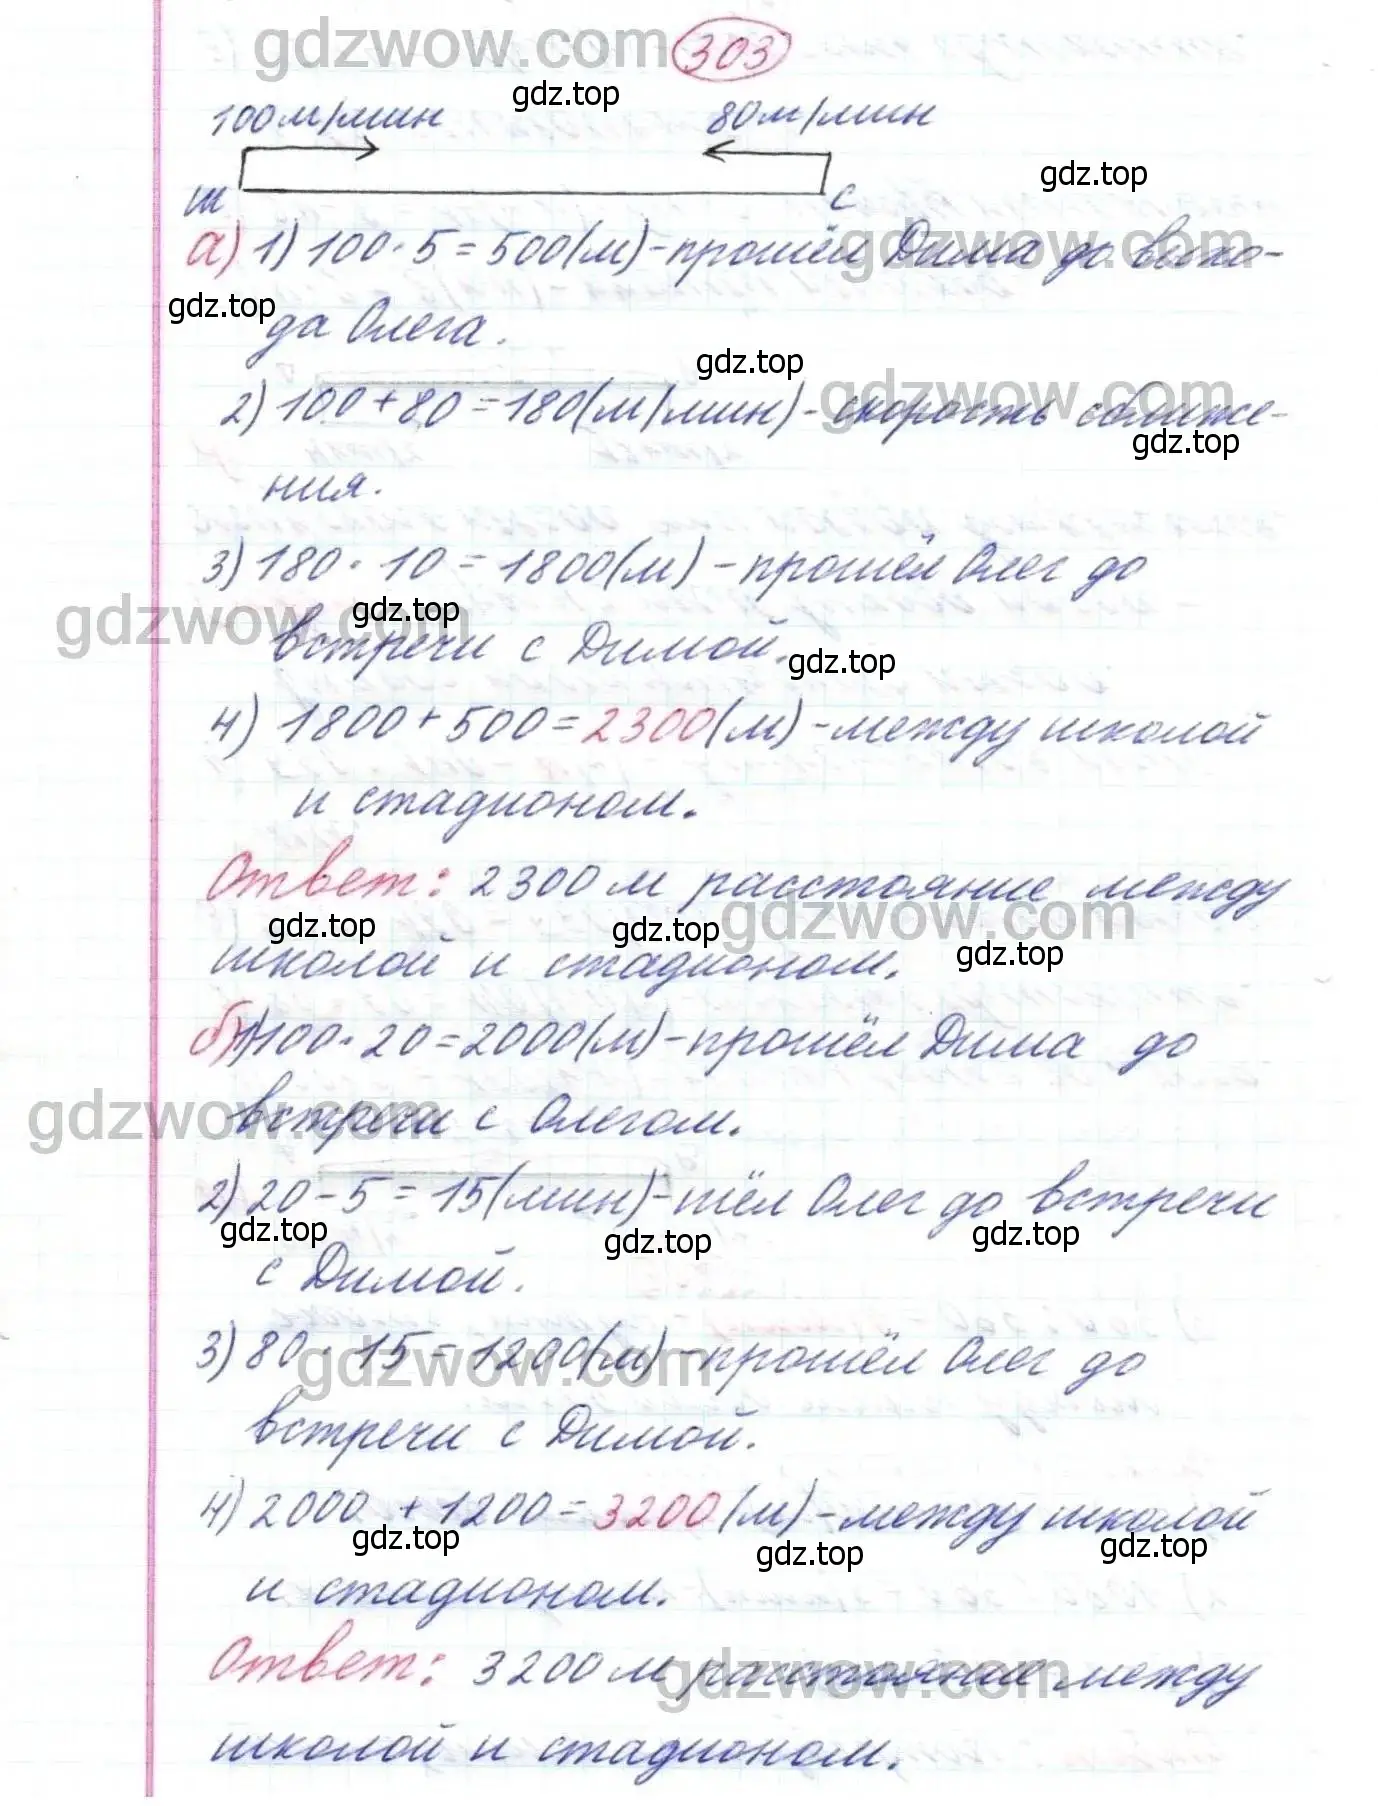 gdzwow.com
303
gdz.top
100м/мин 80м/мин
gdz.top
ш с
gdzwow.com
а) 1) 100·5=500(м)-прошёл Дима до выхо-
gdz.top
да Олега.
gdz.top
gdzwow.com
2) 100+80=180(м/мин)-скорость сближе-
gdz.top
ния.
3) 180·10=1800(м)-прошёл Олег до
gdzwow.com gdz.top
встречи с Димой.
gdz.top
4) 1800+500=2300(м)-между школой
и стадионом.
Ответ: 2300м расстояние между
gdzwow.com
gdz.top gdz.top gdz.top
школой и стадионом.
б) 1) 100·20=2000(м)-прошёл Дима до
gdzwow.com
встречи с Олегом.
2) 20-5=15(мин)-шёл Олег до встречи
gdz.top gdz.top gdz.top
с Димой.
3) 80·15=1200(м)-прошёл Олег до
gdzwow.com
встречи с Димой.
4) 2000+1200=3200(м)-между школой
gdz.top gdz.top gdz.top
и стадионом.
Ответ: 3200м расстояние между
gdzwow.com
школой и стадионом.